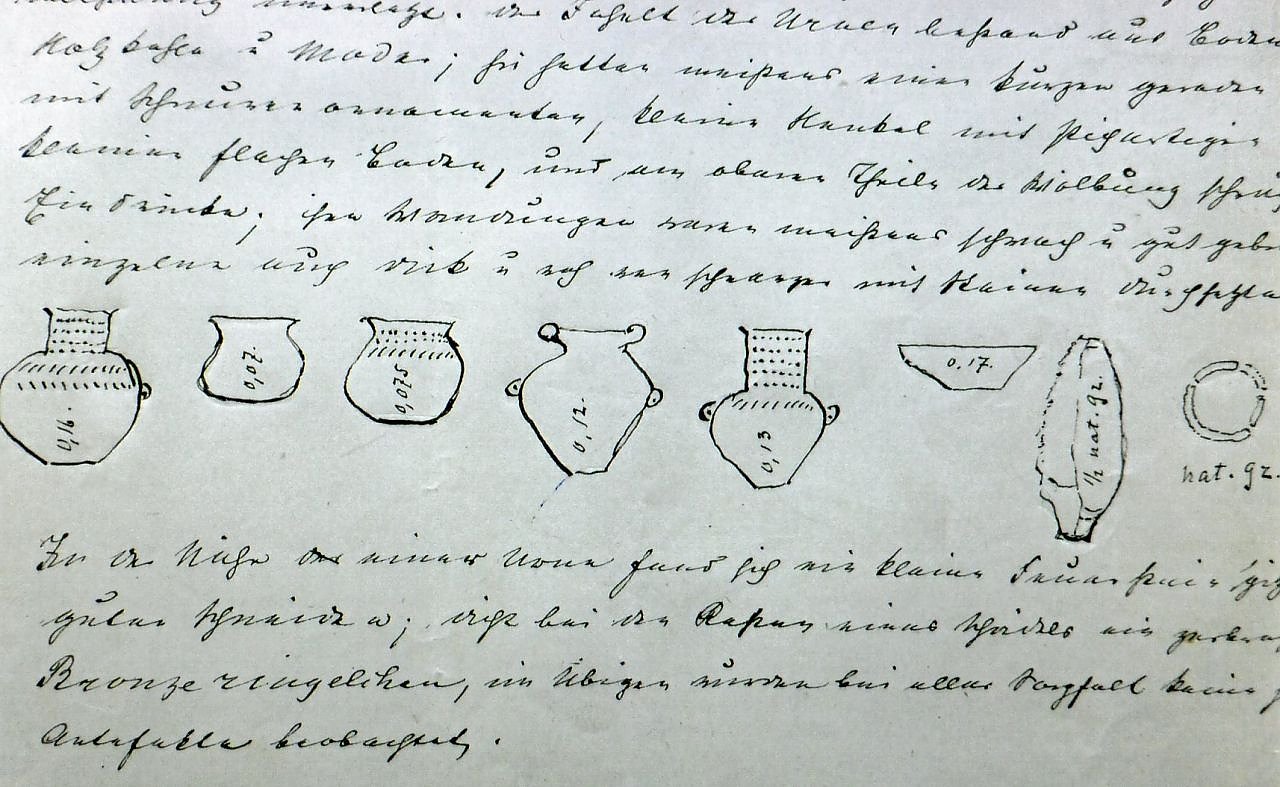 der Inhalt der Urnen bestand aus Boden
Holzkohle u Moder; sie hatten meistens einen kurzen geraden
mit Schnurenornamenten, kleine Henkel mit
kleinen flachen Boden, und am oberen Theile der Wölbung
Eindrücke; ihre Wandungen waren meistens schwach u gut
einzelne auch dick u roh mit Steinen durchsetzt
0,16.
0,07.
0,075
0,12.
0,13
0,17.
1/2 nat. gz.
nat. gz.
In der Nähe einer Urne fand sich ein kleiner Feuerstein
guter Schneide; dicht bei den Resten eines Schädels ein
Bronzeringelchen, im Übrigen wurden bei aller Sorgfalt keine
Artefakte beobachtet.